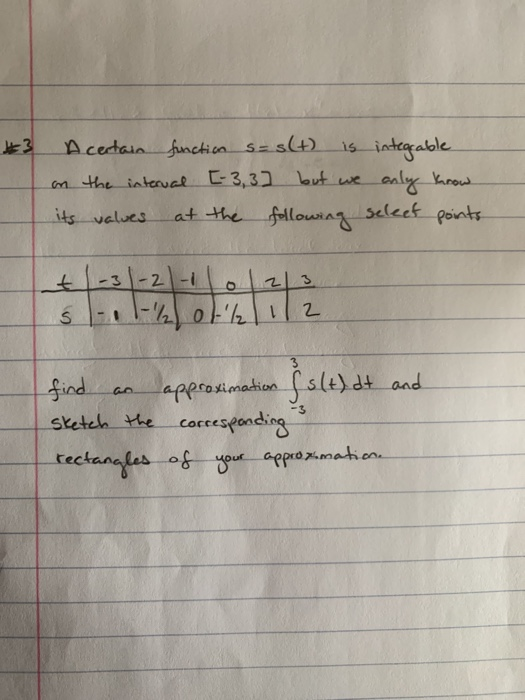 #3 A certain function s = s(t) is integrable
on the interval [-3,3] but we only know
its values at the following select points
t | -3 | -2 | -1 | 0 | 2 | 3
s | -1 | -1/2 | 0 | -1/2 | 1 | 2
find an approximation ∫₋₃³ s(t) dt and
sketch the corresponding
rectangles of your approximation.